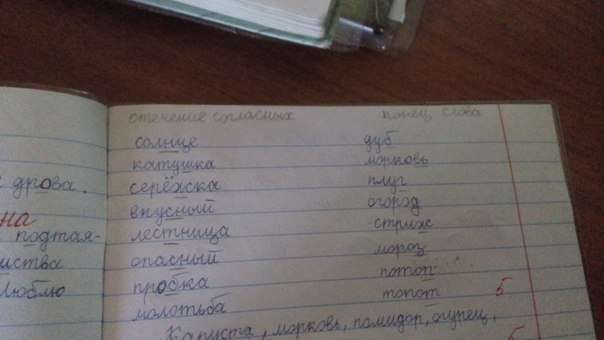 дрова.
на
подтая-
Люблю
стечение согласных
солнце
катушка
серёжка
вкусный
лестница
опасный
пробка
молотьба
конец слова
дуб
морковь
плуг
огород
стриж
мороз
потоп
топот
5
Капуста, морковь, помидор, огурец,